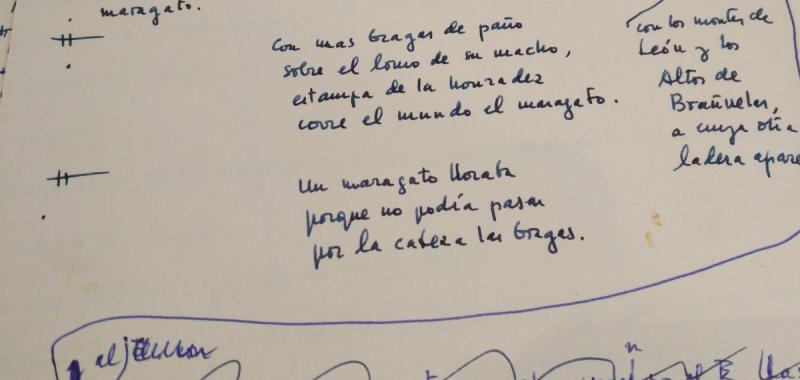 maragato.
Con mas bragas de paño
sobre el lomo de su macho,
estampa de la honradez
corre el mundo el maragato.
Un maragato lloraba
porque no podía pasar
por la cabeza las bragas.
con los montes de
León y los
Altos de
Brañuelas,
a cuya otra
ladera apare
al